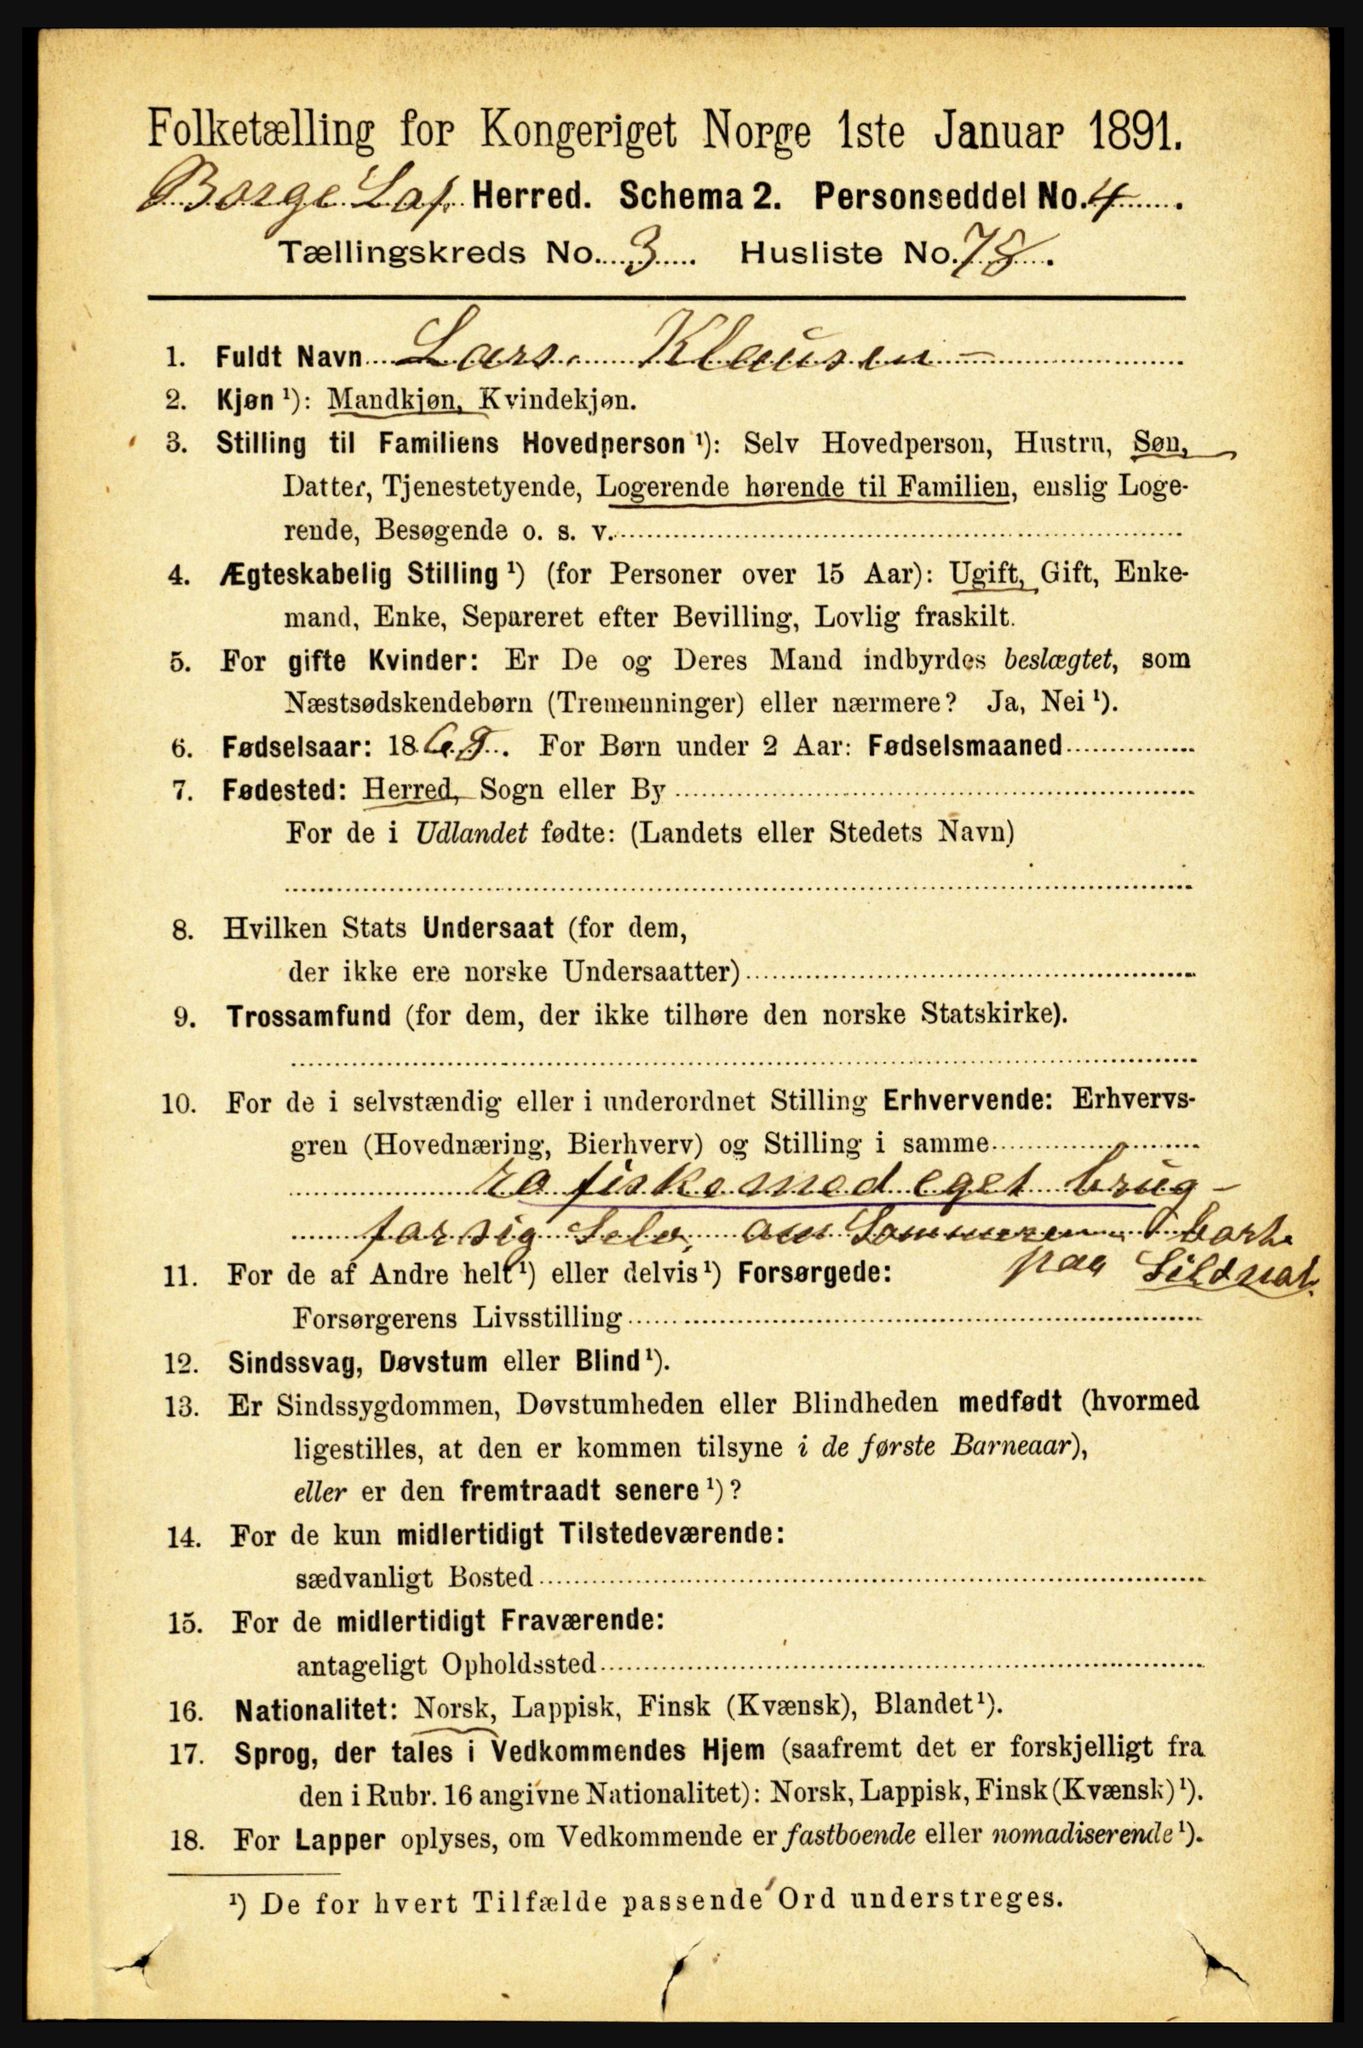 Folketælling for Kongeriget Norge 1ste Januar 1891.
Borge Lof. Herred. Schema 2. Personseddel No. 4.
Tællingskreds No. 3. Husliste No. 78.
1. Fuldt Navn Lars Klausen
2. Kjøn ¹): Mandkjøn, Kvindekjøn.
3. Stilling til Familiens Hovedperson ¹): Selv Hovedperson, Hustru, Søn,
Datter, Tjenestetyende, Logerende hørende til Familien, enslig Loge-
rende, Besøgende o. s. v.
4. Ægteskabelig Stilling ¹) (for Personer over 15 Aar): Ugift, Gift, Enke-
mand, Enke, Separeret efter Bevilling, Lovlig fraskilt.
5. For gifte Kvinder: Er De og Deres Mand indbyrdes beslægtet, som
Næstsødskendebørn (Tremenninger) eller nærmere? Ja, Nei ¹).
6. Fødselsaar: 1869. For Børn under 2 Aar: Fødselsmaaned
7. Fødested: Herred, Sogn eller By
For de i Udlandet fødte: (Landets eller Stedets Navn)
8. Hvilken Stats Undersaat (for dem,
der ikke ere norske Undersaatter)
9. Trossamfund (for dem, der ikke tilhøre den norske Statskirke).
10. For de i selvstændig eller i underordnet Stilling Erhvervende: Erhvervs-
gren (Hovednæring, Bierhverv) og Stilling i samme
fiske med eget brug
for sig Selv, om Sommeren
paa Sildnot.
11. For de af Andre helt ¹) eller delvis ¹) Forsørgede:
Forsørgerens Livsstilling
12. Sindssvag, Døvstum eller Blind ¹).
13. Er Sindssygdommen, Døvstumheden eller Blindheden medfødt (hvormed
ligestilles, at den er kommen tilsyne i de første Barneaar),
eller er den fremtraadt senere ¹)?
14. For de kun midlertidigt Tilstedeværende:
sædvanligt Bosted
15. For de midlertidigt Fraværende:
antageligt Opholdssted
16. Nationalitet: Norsk, Lappisk, Finsk (Kvænsk), Blandet ¹).
17. Sprog, der tales i Vedkommendes Hjem (saafremt det er forskjelligt fra
den i Rubr. 16 angivne Nationalitet): Norsk, Lappisk, Finsk (Kvænsk) ¹).
18. For Lapper oplyses, om Vedkommende er fastboende eller nomadiserende ¹).
¹) De for hvert Tilfælde passende Ord understreges.